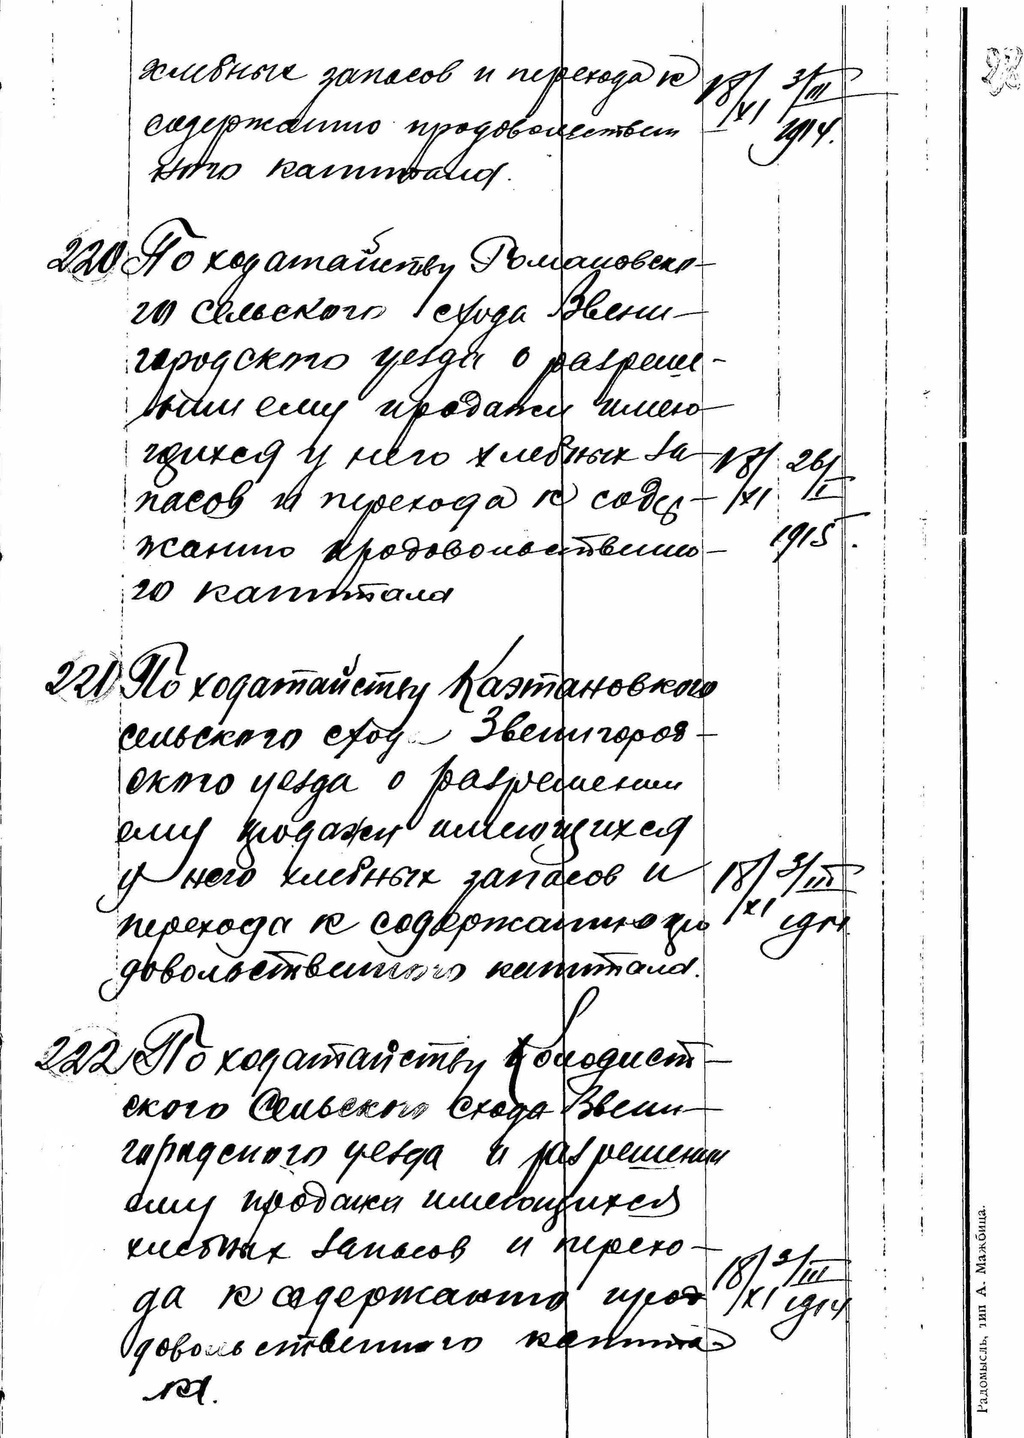 хлебных запасов и перехода к 18/XI 3/III
содержанию продовольствен 1914.
ного капитала.
220 По ходатайству Романовско-
го сельского схода Звени-
городского уезда о разреше-
нии ему продажи имею-
щихся у него хлебных за- 18/XI 26/I
пасов и перехода к содер-
жанию продовольственно- 1915.
го капитала
221 По ходатайству Каэтановкого
сельского схода Звенигород-
ского уезда о разрешении
ему продажи имеющихся
у него хлебных запасов и 18/XI 3/III
перехода к содержанию про
довольственного капитала.
222 По ходатайству Колодист-
ского Сельского Схода Звени-
городского уезда и разрешении
ему продажи имеющихся
хлебных запасов и перехо- 18/XI 3/III
да к содержанию прод 1914
довольственного капита-
ла.
Радомысль, тип А. Мажбица.